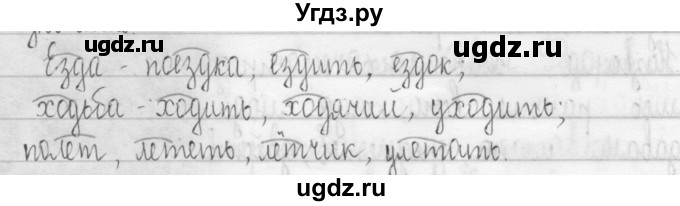 Угдз.ру
Езда - поездка, ездить, ездок,
ходьба - ходить, ходячий, уходить;
полёт, лететь, лётчик, улетать.
ugdz.ru ugdz.ru